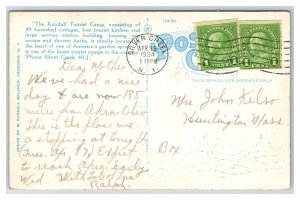 "The Kendall Tourist Camp, consisting of
49 furnished cottages, free tourist kitchen and
large service station building, housing
rooms and shower baths, is ideally located
the heart of one of America's garden spots
is one of the finest tourist camps in the country
Phone Silver Creek 40-J."
PHOTO BY M. PURSELL BELKNAP, FREDONIA, N. Y.
SILVER CREEK
APR
1934
1 PM
N. Y.
1
1
POST
THIS SPACE FOR ADDRESS ONLY
Dear Mother
We have had a nice
day & are now 185
miles from Akron Ohio.
This is the place we
are stopping at tonight
Tues. Apr. Expect
to reach Apr. early
Wed. With lots of love
Ralph.
Mrs. John Kelso
Huntington Mass.
Box